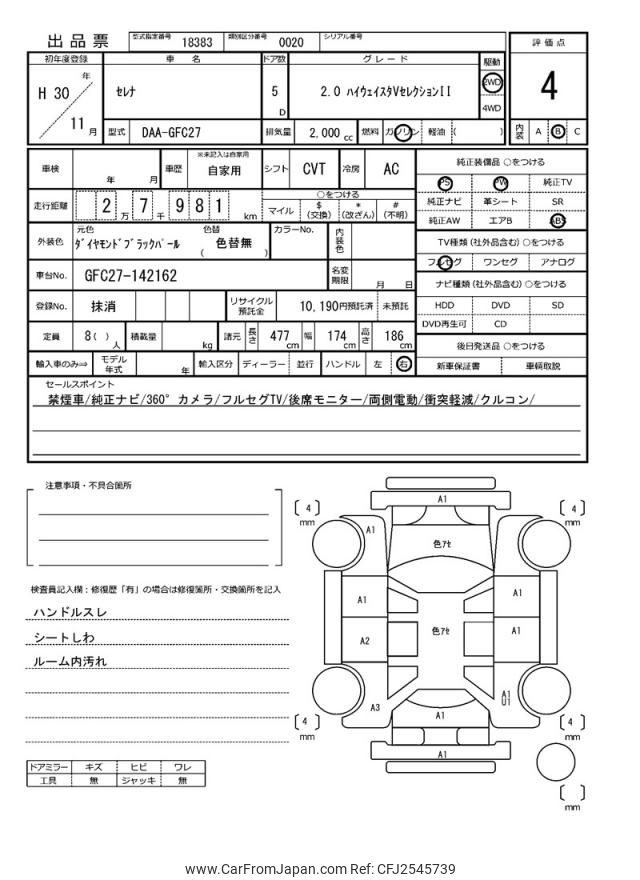 出品票
型式指定番号 18383 類別区分番号 0020 シリアル番号
評価点
4
内装 A B C
初年度登録 車名 ドア数 グレード 駆動
H 30 年 11 月
セレナ 5 D 2.0 ハイウェイスタVセレクションII 2WD
4WD
型式 DAA-GFC27 排気量 2,000 cc 燃料 ガソリン 軽油 ( )
車検 年 月 車歴 ※未記入は自家用 自家用 シフト CVT 冷房 AC
走行距離 2 万 7 千 9 8 1 km
○をつける
マイル $(交換) *(改ざん) #(不明)
外装色 元色 ダイヤモンドブラックパール 色替 ( 色替無 ) カラーNo. 内装色
車台No. GFC27-142162 名変期限 月 日
登録No. 抹消 リサイクル預託金 10,190円預託済 未預託
定員 8( ) 人 積載量 kg 諸元 長さ 477 cm 幅 174 cm 高さ 186 cm
輸入車のみ⇒ モデル年式 年 輸入区分 ディーラー 並行 ハンドル 左 右
純正装備品 ○をつける
PS PW 純正TV
純正ナビ 革シート SR
純正AW エアB ABS
TV種類 (社外品含む) ○をつける
フルセグ ワンセグ アナログ
ナビ種類 (社外品含む) ○をつける
HDD DVD SD
DVD再生可 CD
後日発送品 ○をつける
新車保証書 車輌取説
セールスポイント
禁煙車/純正ナビ/360°カメラ/フルセグTV/後席モニター/両側電動/衝突軽減/クルコン/
注意事項・不具合箇所
検査員記入欄：修復歴「有」の場合は修復箇所・交換箇所を記入
ハンドルスレ
シートしわ
ルーム内汚れ
ドアミラー キズ ヒビ ワレ
工具 無 ジャッキ 無
A1
[ 4 ] mm
[ 4 ] mm
A1
色アセ
A1
A1
色アセ
A2
A1
A3
A1
U1
A1
[ 4 ] mm
[ 4 ] mm
A1
[ ] mm
www.CarFromJapan.com Ref: CFJ2545739